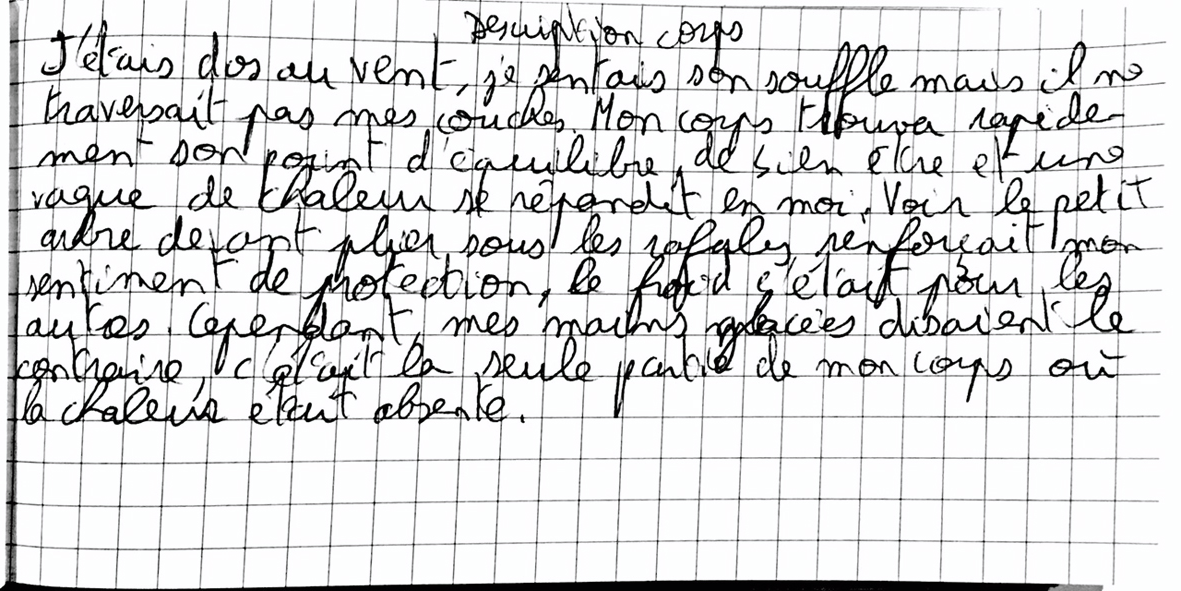 Description corps
J'étais dos au vent, je sentais son souffle mais il ne
traversait pas mes couches. Mon corps trouva rapide-
ment son point d'équilibre, de bien être et une
vague de chaleur se répandit en moi. Voir le petit
arbre devant plier sous les rafales, renforçait mon
sentiment de protection, le froid c'était pour les
autres. Cependant, mes mains glacées disaient le
contraire, c'était la seule partie de mon corps où
la chaleur était absente.